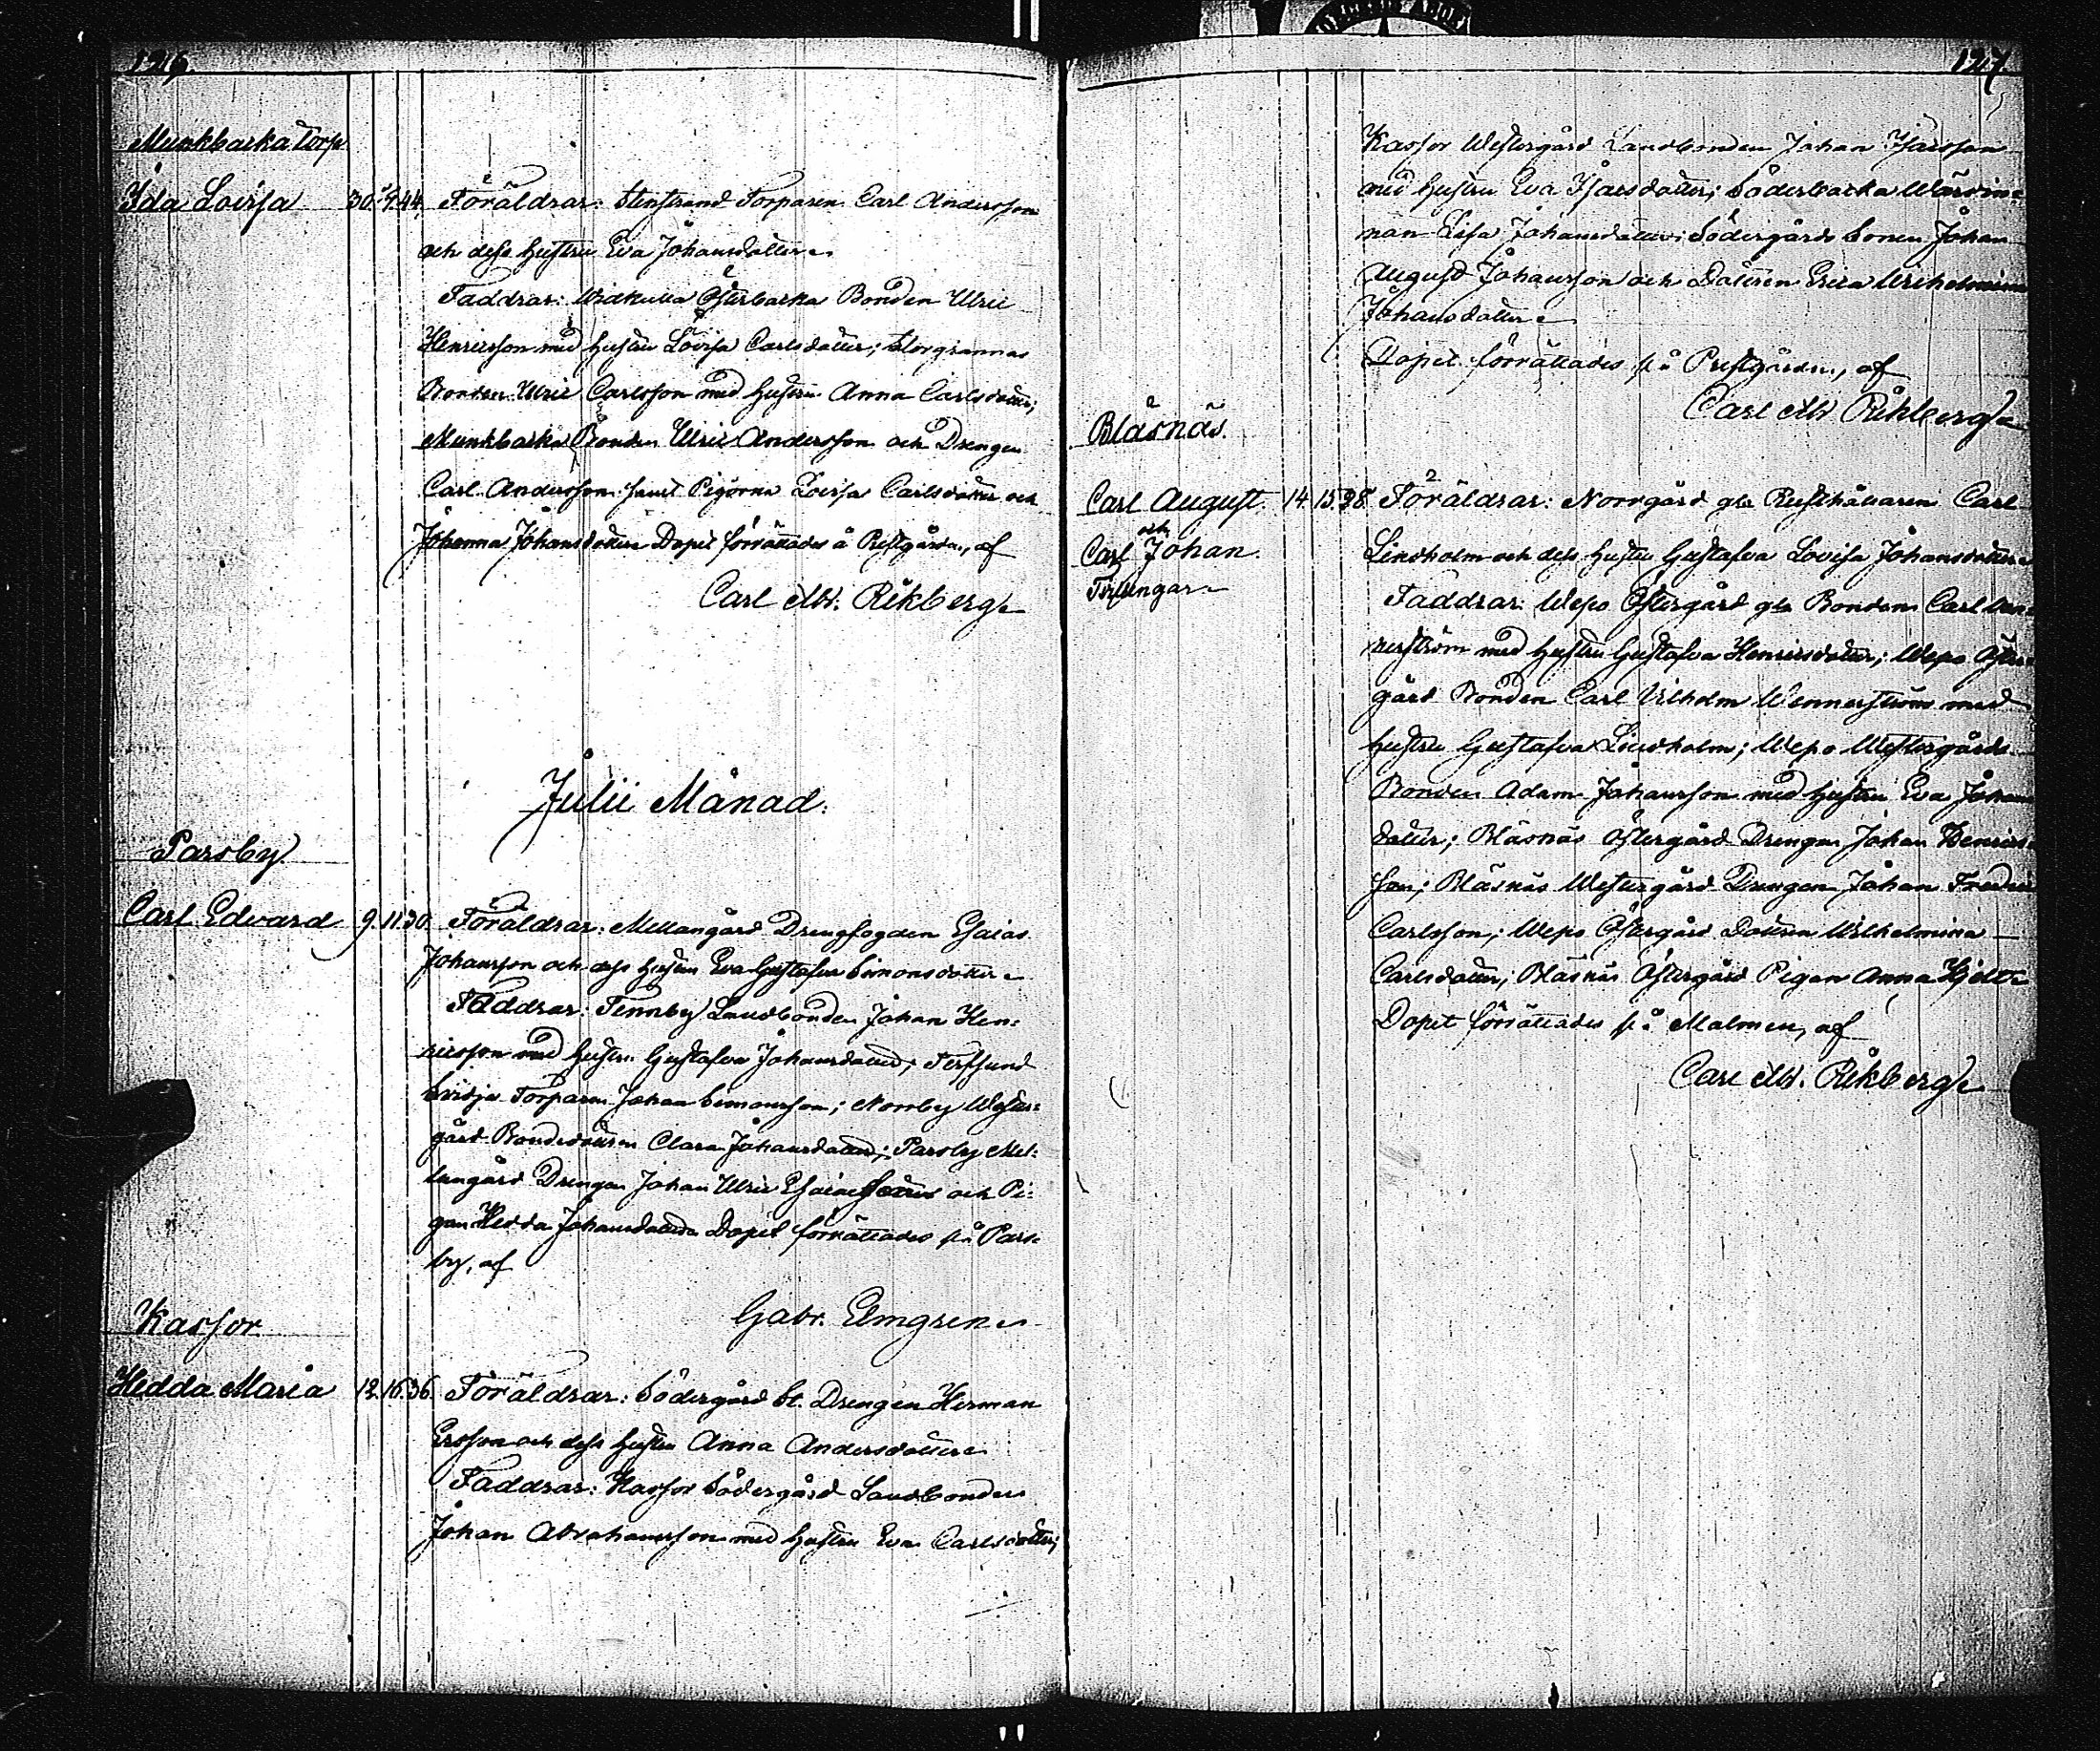 126.
Munkbacka Torp
Ida Lovisa 30. 9. 44. Föräldrar: Stenstrand Torparen Carl Andersson
och dess hustru Eva Johansdotter
Faddrar: Österbacka Bonden Ulric
Henricsson med hustru Lovisa Carlsdotter; Storgrannas
Bonden Ulric Carlsson med hustru Anna Carlsdotter;
Munkbacka Bonden Ulric Andersson och Drengen
Carl Andersson samt Pigorna Lovisa Carlsdotter och
Johanna Johansdotter Dopet förrättades å Prestgården, af
Carl Rikberg
Julii Månad.
Parsby.
Carl Edvard 9. 11. 30. Föräldrar: Mellangård Drengfogden Esaias
Johansson och dess hustru Eva Gustafva Simonsdotter
Faddrar: Tennby Landbonden Johan Hen-
ricsson med hustru Gustafva Johansdotter;
Torparen Johan Simonsson; Norrby Wester-
gård Bondedottern Clara Johansdotter; Parsby Mel-
langård Drengen Johan Ulric och Pi-
gan Hedda Johansdotter Dopet förrättades på Pars-
by, af
Gabr. Elmgren
Karsor
Hedda Maria 12. 16. 36. Föräldrar: Södergård St. Drengen Herman
Ersson och dess hustru Anna Andersdotter
Faddrar: Karsor Södergård Landbonden
Johan Abrahamsson med hustru Eva Carlsdotter;
127.
Karsor Westergård Landbonden Johan Isacsson
med hustru Eva Isacsdotter; Söderbacka Wärdin-
nan Lisa Johansdotter; Södergårds Sonen Johan
August Johansson och Dottren Erica Wilhelmina
Johansdotter
Dopet förrättades på Prestgården, af
Carl Rikberg
Bläsnäs.
Carl August 14. 15. 38. Föräldrar: Norrgård gla Rusthållaren Carl
och
Carl Johan Lindholm och dess hustru Gustafva Lovisa Johansdotter
Tvillingar Faddrar: Wepo Östergård gla Bonden Carl Wen-
nerström med hustru Gustafva Henricsdotter; Wepo Öster-
gård Bonden Carl Vilhelm Wennerström med
hustru Gustafva Lindholm; Wepo Westergårds
Bonden Adam Johansson med hustru Eva Johans-
dotter; Bläsnäs Östergård Drengen Johan Henrics-
son; Bläsnäs Westergård Drengen Johan Fredric
Carlsson; Wepo Östergård Dottren Wilhelmina
Carlsdotter; Bläsnäs Östergård Pigan Anna Hjelt
Dopet förrättades på Malmen, af
Carl Rikberg